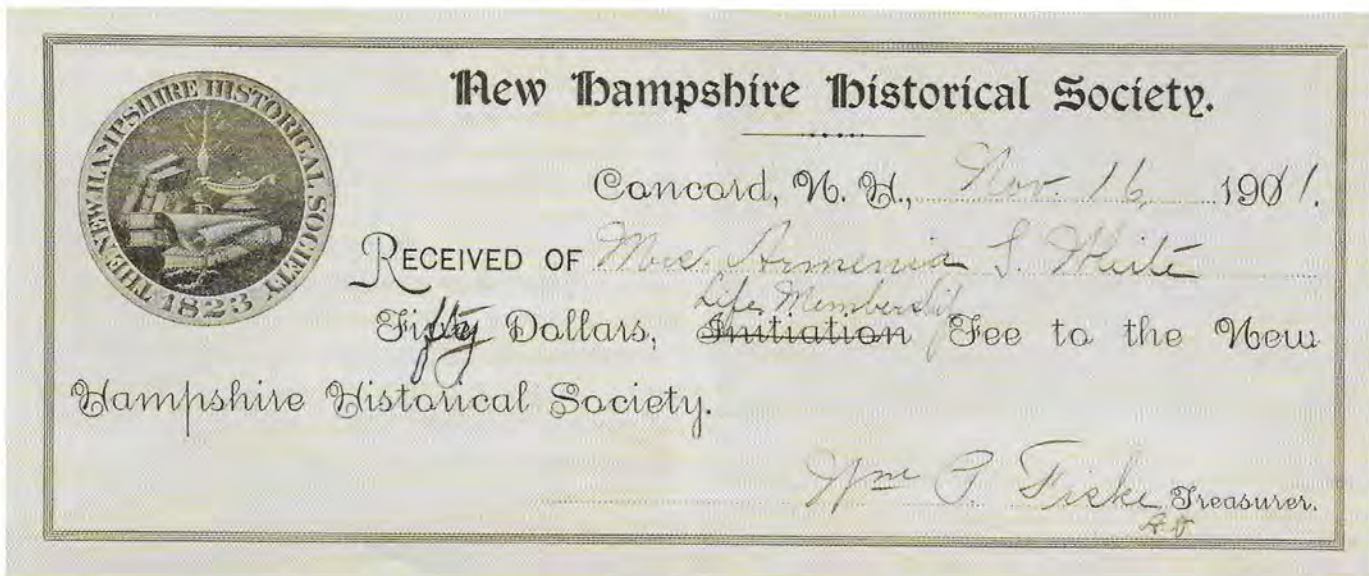 THE NEW HAMPSHIRE HISTORICAL SOCIETY
1823
New Hampshire Historical Society.
Concord, N. H., Nov. 16, 1901.
RECEIVED OF Mrs. Armenia S. White
Life Membership
Fifty Dollars, Initiation Fee to the New
Hampshire Historical Society.
Wm P. Fiske Treasurer.